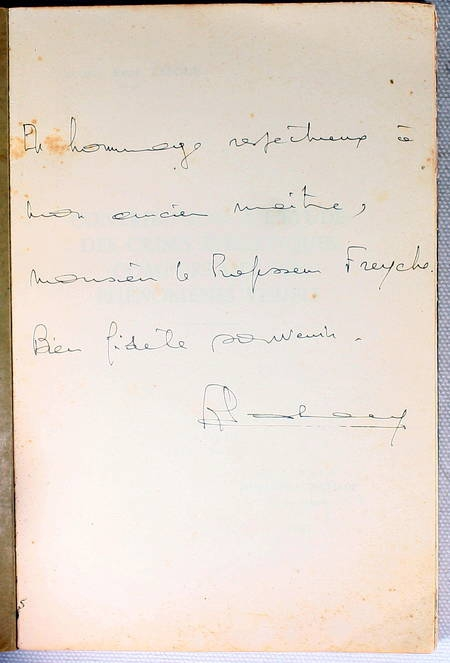 En hommage respectueux à
mon ancien maître,
monsieur le Professeur Freyche.
Bien fidèle souvenir.